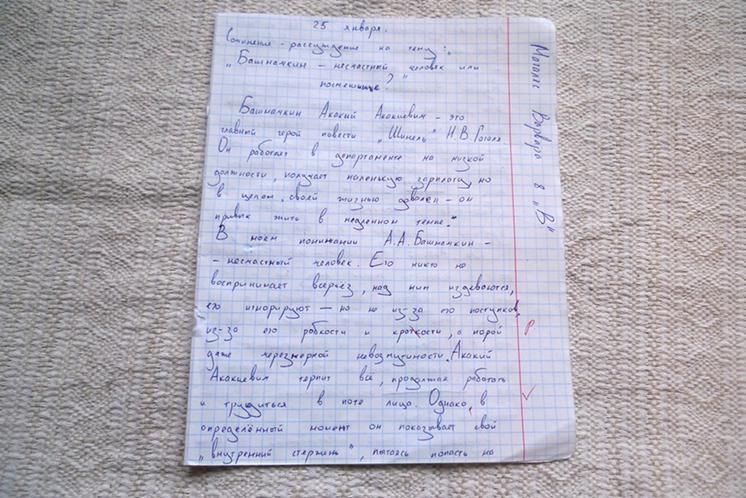 25 января.
Сочинение-рассуждение на тему:
„Башмачкин – несчастный человек или
посмешище?"
Башмачкин Акакий Акакиевич – это
главный герой повести „Шинель" Н.В.Гоголя
Он работает в департаменте на низкой
должности, получает маленькую зарплату, но
в целом, своей жизнью доволен – он
привык жить в медленном темпе.
В моем понимании А.А.Башмачкин –
- несчастный человек. Его никто не
воспринимает всерьёз, над ним издеваются,
его игнорируют – но не из-за его поступков,
из-за его робкости и кроткости, а порой
даже чрезмерной невозмутимости. Акакий
Акакиевич терпит все, продолжая работать
и трудиться в поте лица. Однако, в
определённый момент он показывает свой
„внутренний стержень", пытаясь попасть на
Варвара 8 „В"
Р